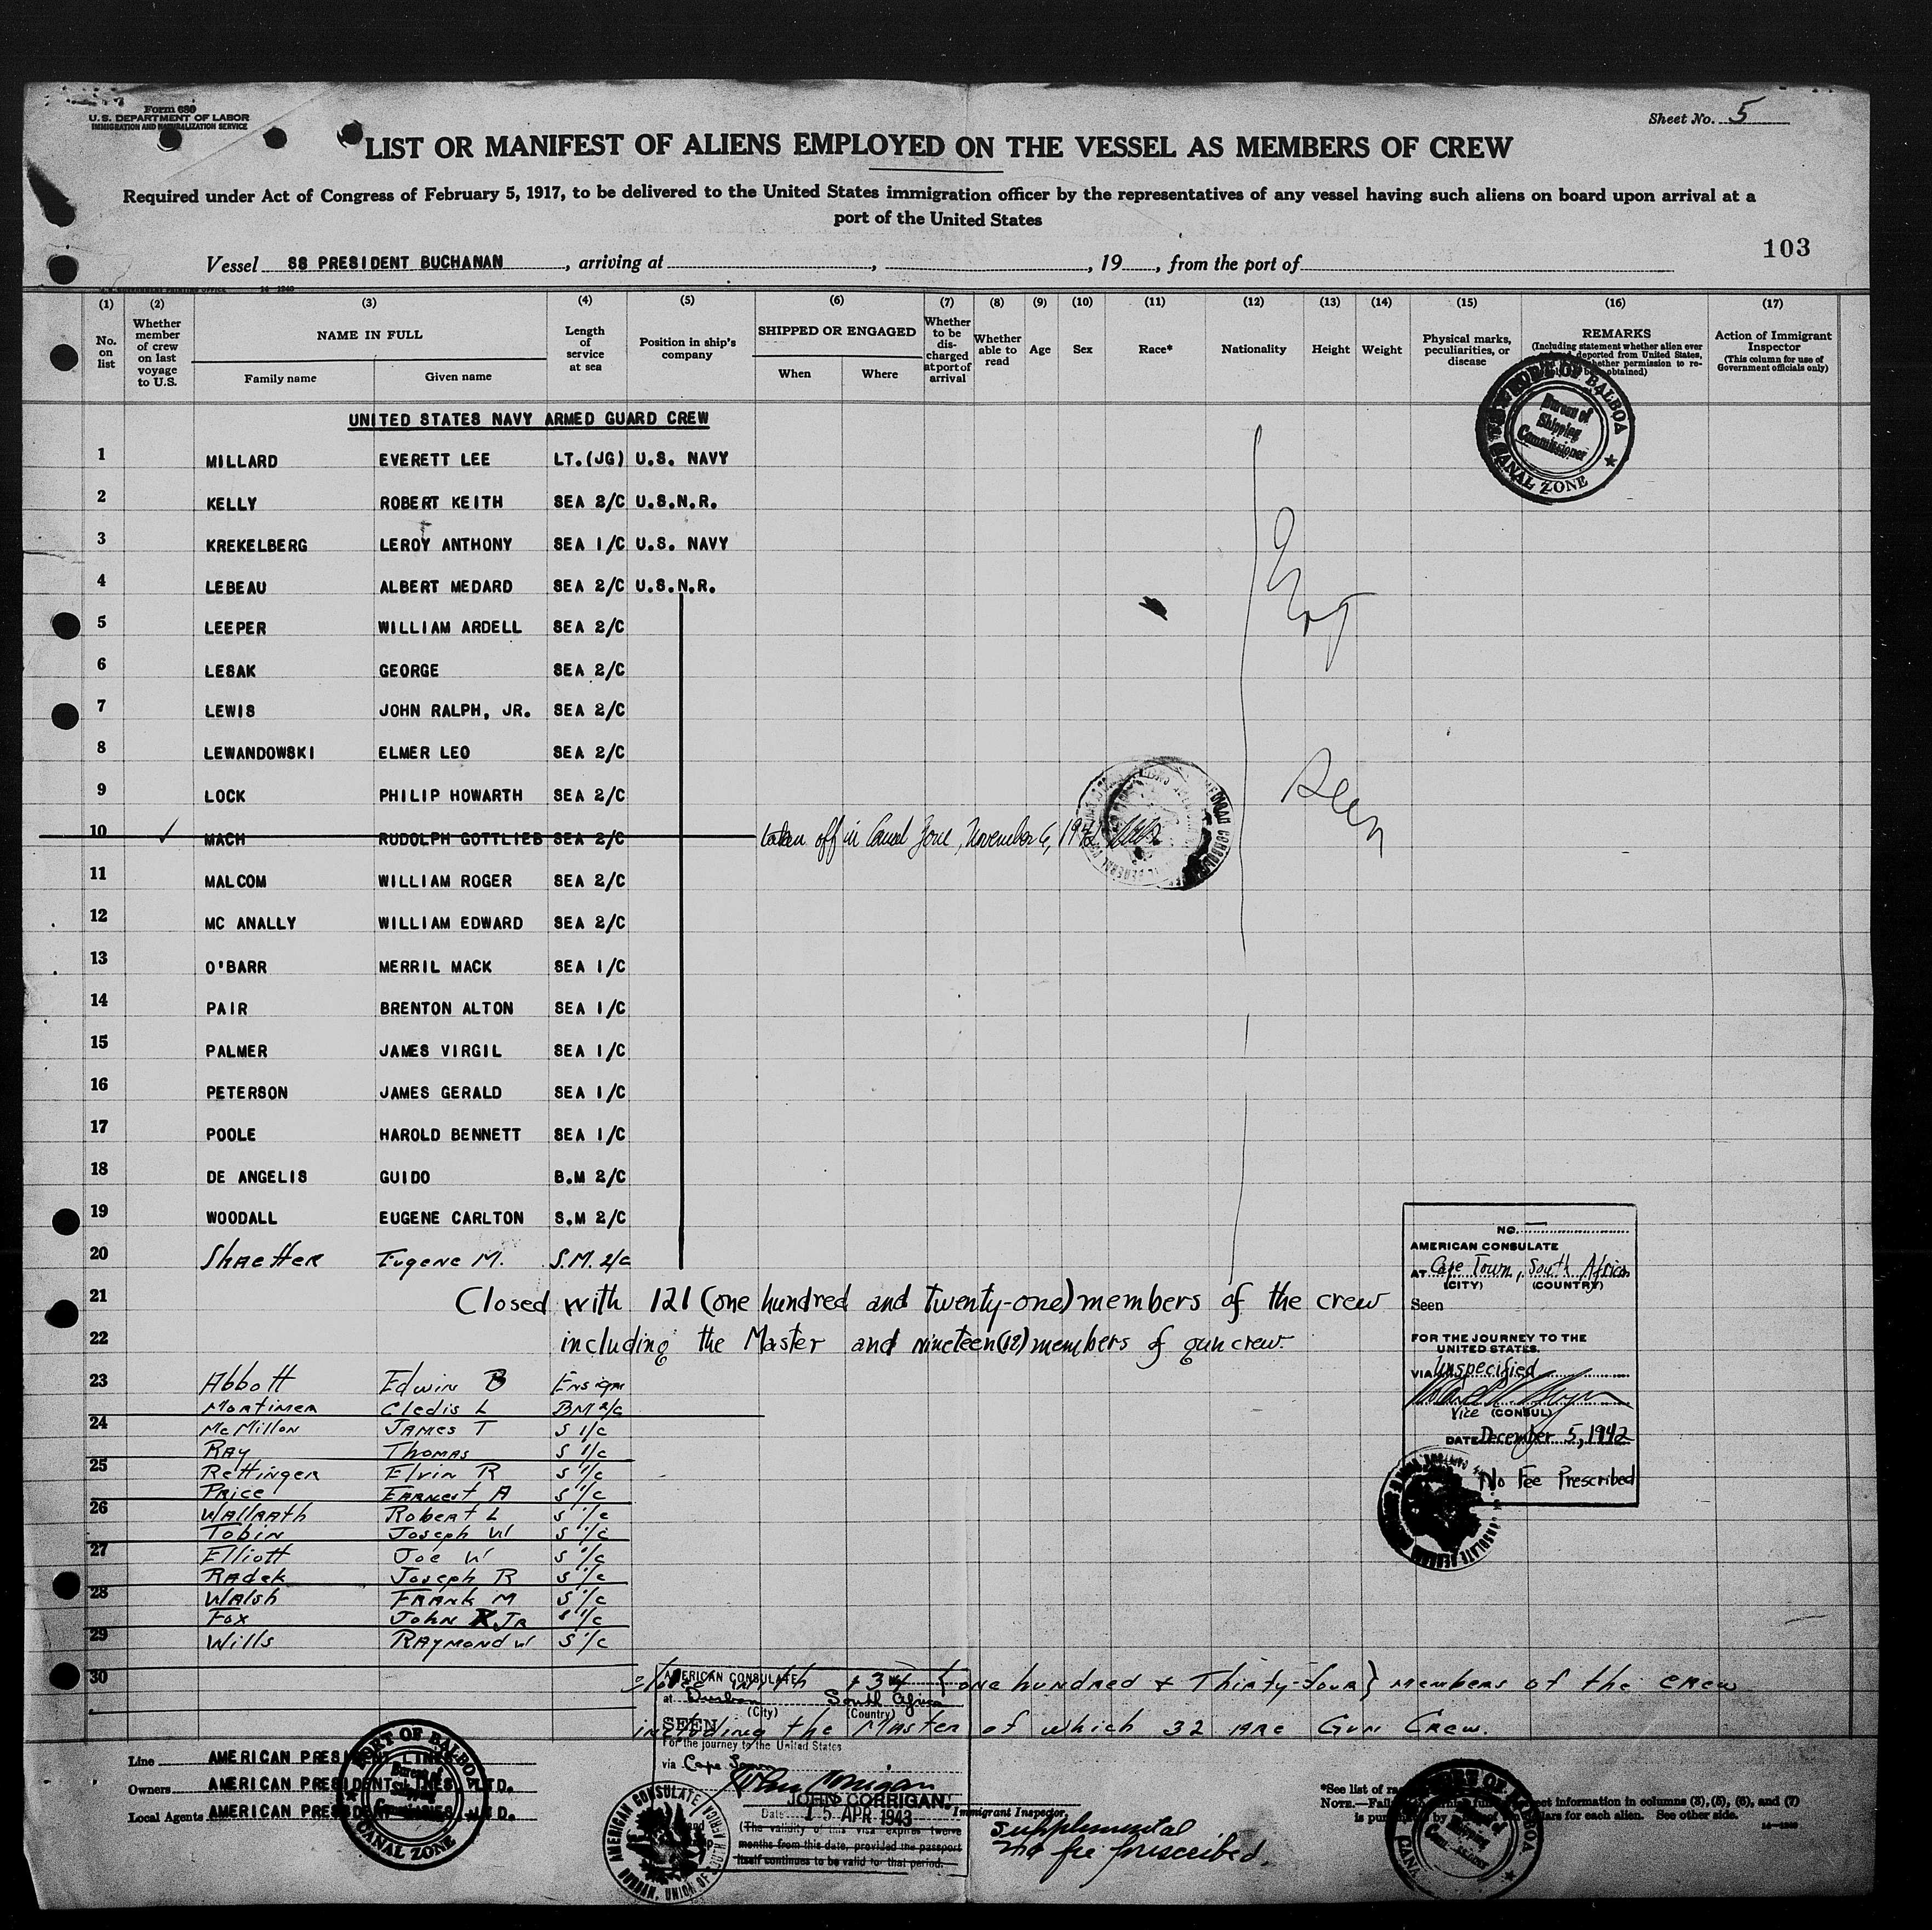 Form 680
U.S. DEPARTMENT OF LABOR
IMMIGRATION AND NATURALIZATION SERVICE
Sheet No. 5
LIST OR MANIFEST OF ALIENS EMPLOYED ON THE VESSEL AS MEMBERS OF CREW
Required under Act of Congress of February 5, 1917, to be delivered to the United States immigration officer by the representatives of any vessel having such aliens on board upon arrival at a
port of the United States
103
Vessel SS PRESIDENT BUCHANAN, arriving at , , 19 , from the port of
(1) (2) (3) (4) (5) (6) (7) (8) (9) (10) (11) (12) (13) (14) (15) (16) (17)
No. on list
Whether member of crew on last voyage to U.S.
NAME IN FULL
Family name Given name
Length of service at sea
Position in ship's company
SHIPPED OR ENGAGED
When Where
Whether to be discharged at port of arrival
Whether able to read
Age
Sex
Race*
Nationality
Height
Weight
Physical marks, peculiarities, or disease
REMARKS
(Including statement whether alien ever deported from United States, whether permission to re- obtained)
Action of Immigrant Inspector
(This column for use of Government officials only)
PORT OF BALBOA
Bureau of Shipping Commissioner
CANAL ZONE
UNITED STATES NAVY ARMED GUARD CREW
1 MILLARD EVERETT LEE LT.(JG) U.S. NAVY
2 KELLY ROBERT KEITH SEA 2/C U.S.N.R.
3 KREKELBERG LEROY ANTHONY SEA 1/C U.S. NAVY
4 LEBEAU ALBERT MEDARD SEA 2/C U.S.N.R.
5 LEEPER WILLIAM ARDELL SEA 2/C
6 LESAK GEORGE SEA 2/C
7 LEWIS JOHN RALPH, JR. SEA 2/C
8 LEWANDOWSKI ELMER LEO SEA 2/C
9 LOCK PHILIP HOWARTH SEA 2/C
Seen
10 MACH RUDOLPH GOTTLIEB SEA 2/C taken off in Canal Zone, November 6, 1942
11 MALCOM WILLIAM ROGER SEA 2/C
12 MC ANALLY WILLIAM EDWARD SEA 2/C
13 O'BARR MERRIL MACK SEA 1/C
14 PAIR BRENTON ALTON SEA 1/C
15 PALMER JAMES VIRGIL SEA 1/C
16 PETERSON JAMES GERALD SEA 1/C
17 POOLE HAROLD BENNETT SEA 1/C
18 DE ANGELIS GUIDO B.M 2/C
19 WOODALL EUGENE CARLTON S.M 2/C
20 Shaeffer Eugene M. S.M. 2/c
21 Closed with 121 (one hundred and twenty-one) members of the crew
22 including the Master and nineteen (19) members of gun crew.
NO.
AMERICAN CONSULATE
AT Cape Town, South Africa
(CITY) (COUNTRY)
Seen
FOR THE JOURNEY TO THE
UNITED STATES.
VIA Unspecified
Vice (CONSUL)
DATE December 5, 1942
No Fee Prescribed
23 Abbott Edwin B Ensign
Mortimer Cledis L BM 2/c
24 McMillon James T S 1/c
Ray Thomas S 1/c
25 Rettinger Elvin R S 1/c
Price Earnest A S 1/c
26 Wallrath Robert L S 1/c
Tobin Joseph W S 1/c
27 Elliott Joe W S 1/c
Radek Joseph R S 1/c
28 Walsh Frank M S 1/c
Fox John R Jr S 1/c
29 Wills Raymond W S 1/c
30 with 134 {one hundred + Thirty-four} members of the crew
including the Master of which 32 are Gun Crew.
AMERICAN CONSULATE
at Durban South Africa
(City) (Country)
SEEN
For the journey to the United States
via Cape Town
John Corrigan
JOHN CORRIGAN.
Date 15 APR 1943
(The validity of this visa expires twelve
months from this date, provided the passport
itself continues to be valid for that period.
AMERICAN CONSULATE
DURBAN, UNION OF
Line AMERICAN PRESIDENT LINES
Owners AMERICAN PRESIDENT LINES, LTD.
Local Agents AMERICAN PRESIDENT LTD.
PORT OF BALBOA
Bureau of Shipping Commissioner
CANAL ZONE
Immigrant Inspector.
Supplemental
no fee prescribed.
*See list of
NOTE.—Failure information in columns (3), (5), (6), and (7)
is for each alien. See other side.